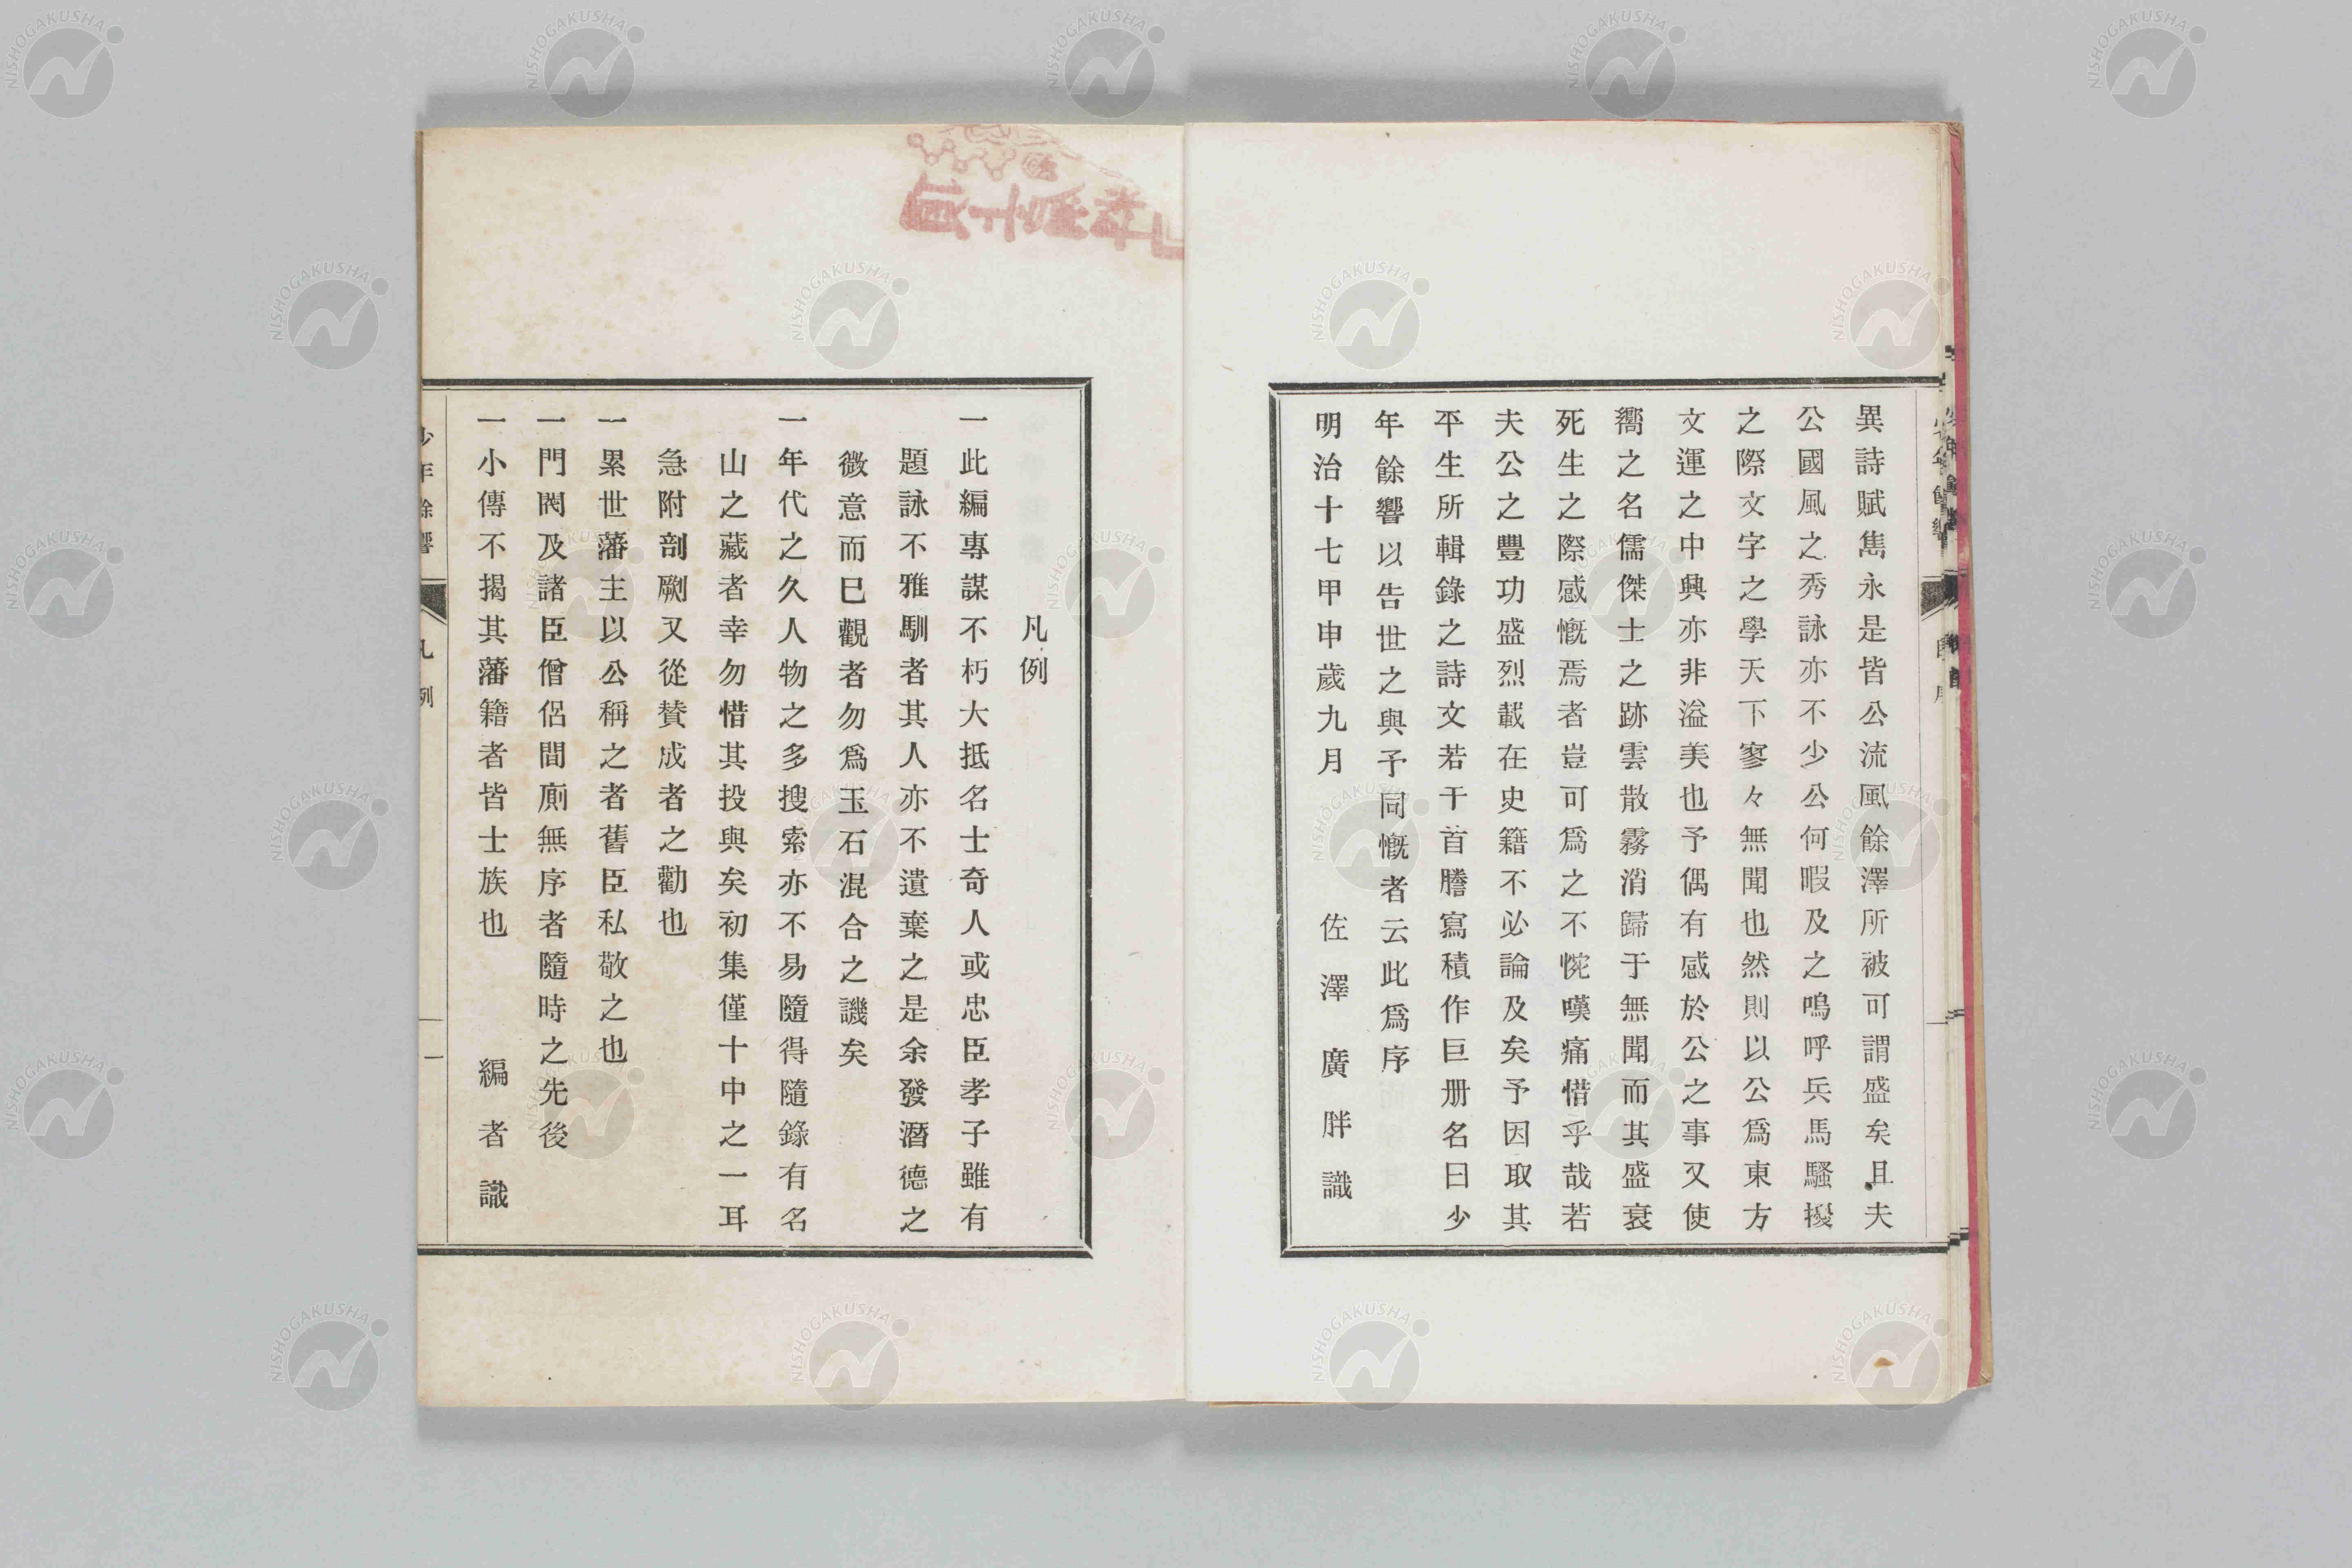 異詩賦雋永是皆公流風餘澤所被可謂盛矣且夫
公國風之秀詠亦不少公何暇及之嗚呼兵馬騷擾
之際文字之學天下寥々無聞也然則以公爲東方
文運之中興亦非溢美也予偶有感於公之事又使
嚮之名儒傑士之跡雲散霧消歸于無聞而其盛衰
死生之際感慨焉者豈可爲之不惋嘆痛惜乎哉若
夫公之豐功盛烈載在史籍不必論及矣予因取其
平生所輯錄之詩文若干首謄寫積作巨册名曰少
年餘響以告世之與予同慨者云此爲序
明治十七甲申歲九月 佐澤廣胖識
凡例
一此編專謀不朽大抵名士奇人或忠臣孝子雖有
題詠不雅馴者其人亦不遺棄之是余發潛德之
微意而已觀者勿爲玉石混合之譏矣
一年代之久人物之多搜索亦不易隨得隨錄有名
山之藏者幸勿惜其投與矣初集僅十中之一耳
急附剖劂又從贊成者之勸也
一累世藩主以公稱之者舊臣私敬之也
一門閥及諸臣僧侶間廁無序者隨時之先後
一小傳不揭其藩籍者皆士族也 編者識
少年餘響 凡例 一
NISHOGAKUSHA